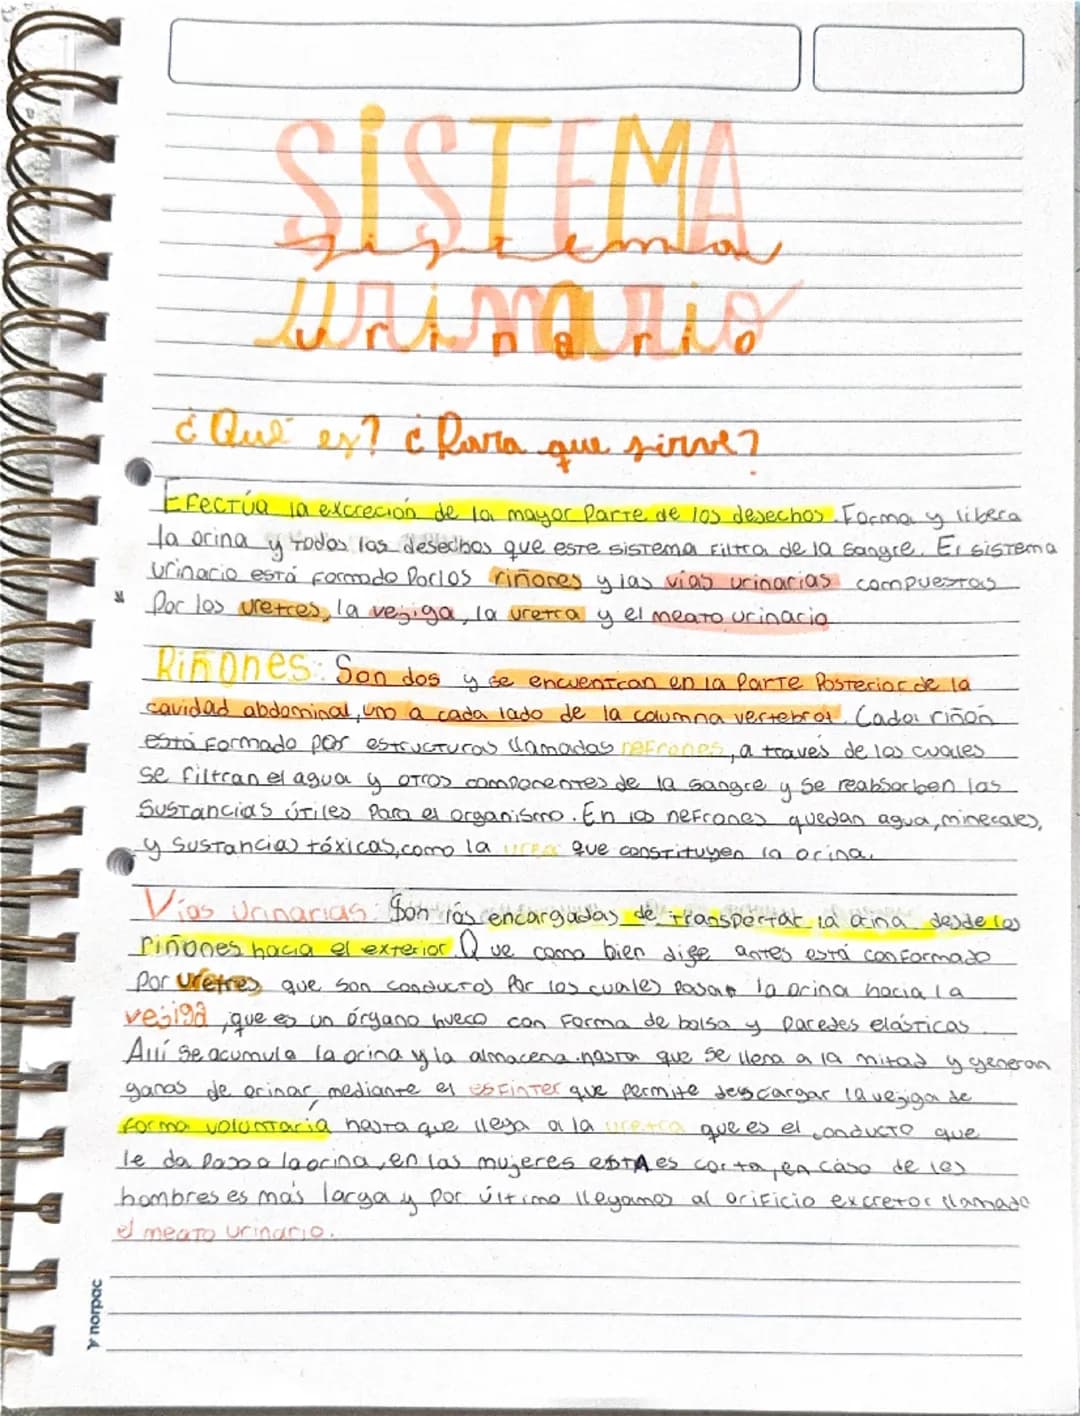 SISTEMA
sistema
urinario
urinario
¿Qué es? ¿Para que sirve?
Efectúa la excreción de la mayor parte de los desechos. Forma y libera
la orina y todos los desechos que este sistema filtra de la sangre. El sistema
urinario está formado por los riñones y las vías urinarias compuestas
Por los uretres, la vejiga, la uretra y el meato urinario
Riñones: Son dos y se encuentran en la parte posterior de la
cavidad abdominal, uno a cada lado de la columna vertebral. Cada riñón
está formado por estructuras llamadas nefrones, a través de las cuales
se filtran el agua y otros componentes de la sangre y se reabsorben las
sustancias útiles para el organismo. En los nefrones quedan agua, minerales,
y sustancias tóxicas, como la urea que constituyen la orina.
Vías urinarias: Son las encargadas de transportar la orina desde los
riñones hacia el exterior. Que como bien dije antes está conformado
por uretres que son conductos por los cuales pasan la orina hacia la
vejiga, que es un órgano hueco con forma de bolsa y paredes elásticas.
Allí se acumula la orina y la almacena hasta que se llena a la mitad y generan
ganas de orinar, mediante el esfinter que permite descargar la vejiga de
forma voluntaria hasta que llega a la uretra que es el conducto que
le da paso a la orina, en las mujeres esta es corta, en caso de los
hombres es más larga y por último llegamos al orificio excretor llamado
el meato urinario.
norpac